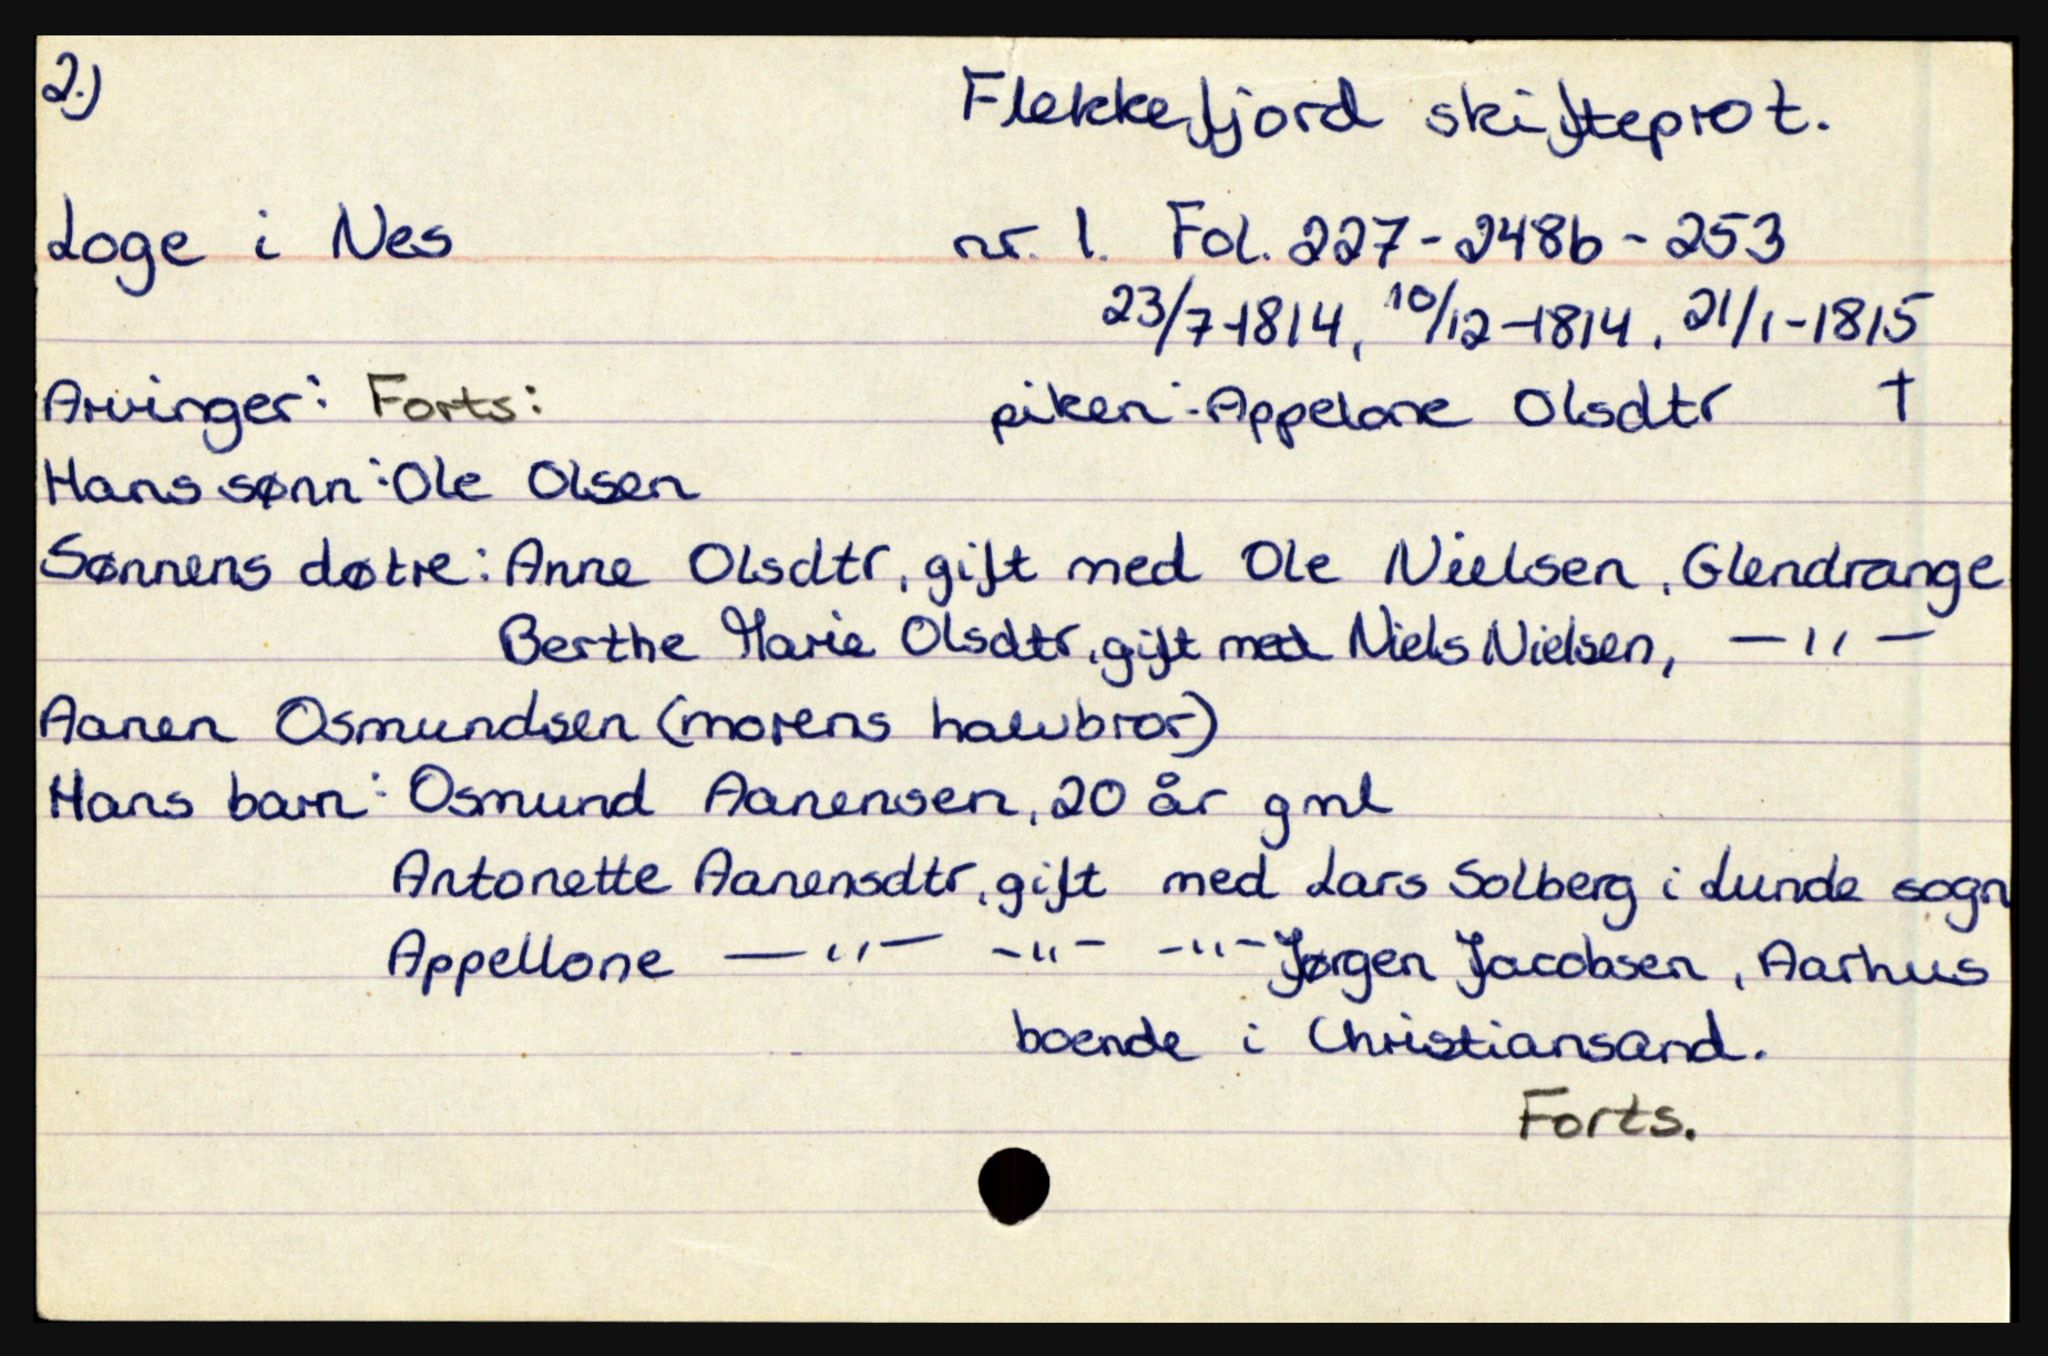 2.) Flekkefjord skifteprot.
Loge i Nes nr. 1. Fol. 227-248b-253
23/7-1814, 10/12-1814, 21/1-1815
Arvinger: Forts: piken: Appelone Olsdtr †
Hans sønn: Ole Olsen
Sønnens døtre: Anne Olsdtr, gift med Ole Nielsen, Glendrange
Berthe Marie Olsdtr, gift med Niels Nielsen, —〃—
Aanen Osmundsen (morens halvbror)
Hans barn: Osmund Aanensen, 20 år gml
Antonette Aanensdtr, gift med Lars Solberg i Lunde sogn
Appellone —〃— -〃- -〃- Jørgen Jacobsen, Aarhus
boende i Christiansand.
Forts.